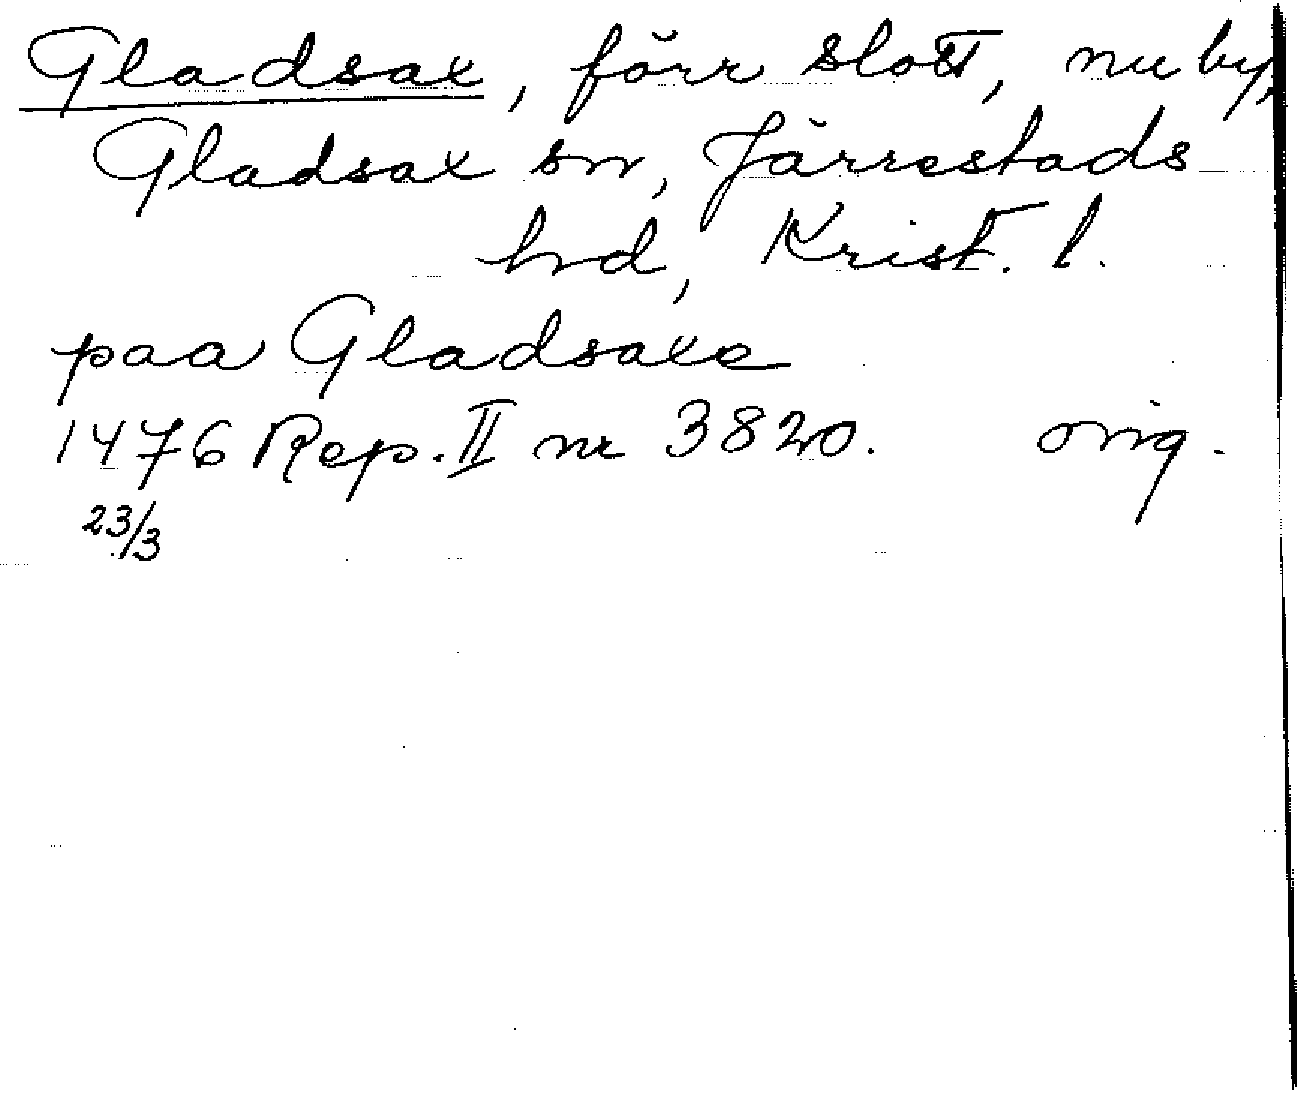 Gladsax, förr slott, nu by,
Gladsax sn, Järrestads
hrd, Krist. l.
paa Gladsaxe
1476 Rep. II nr 3820. orig.
23/3